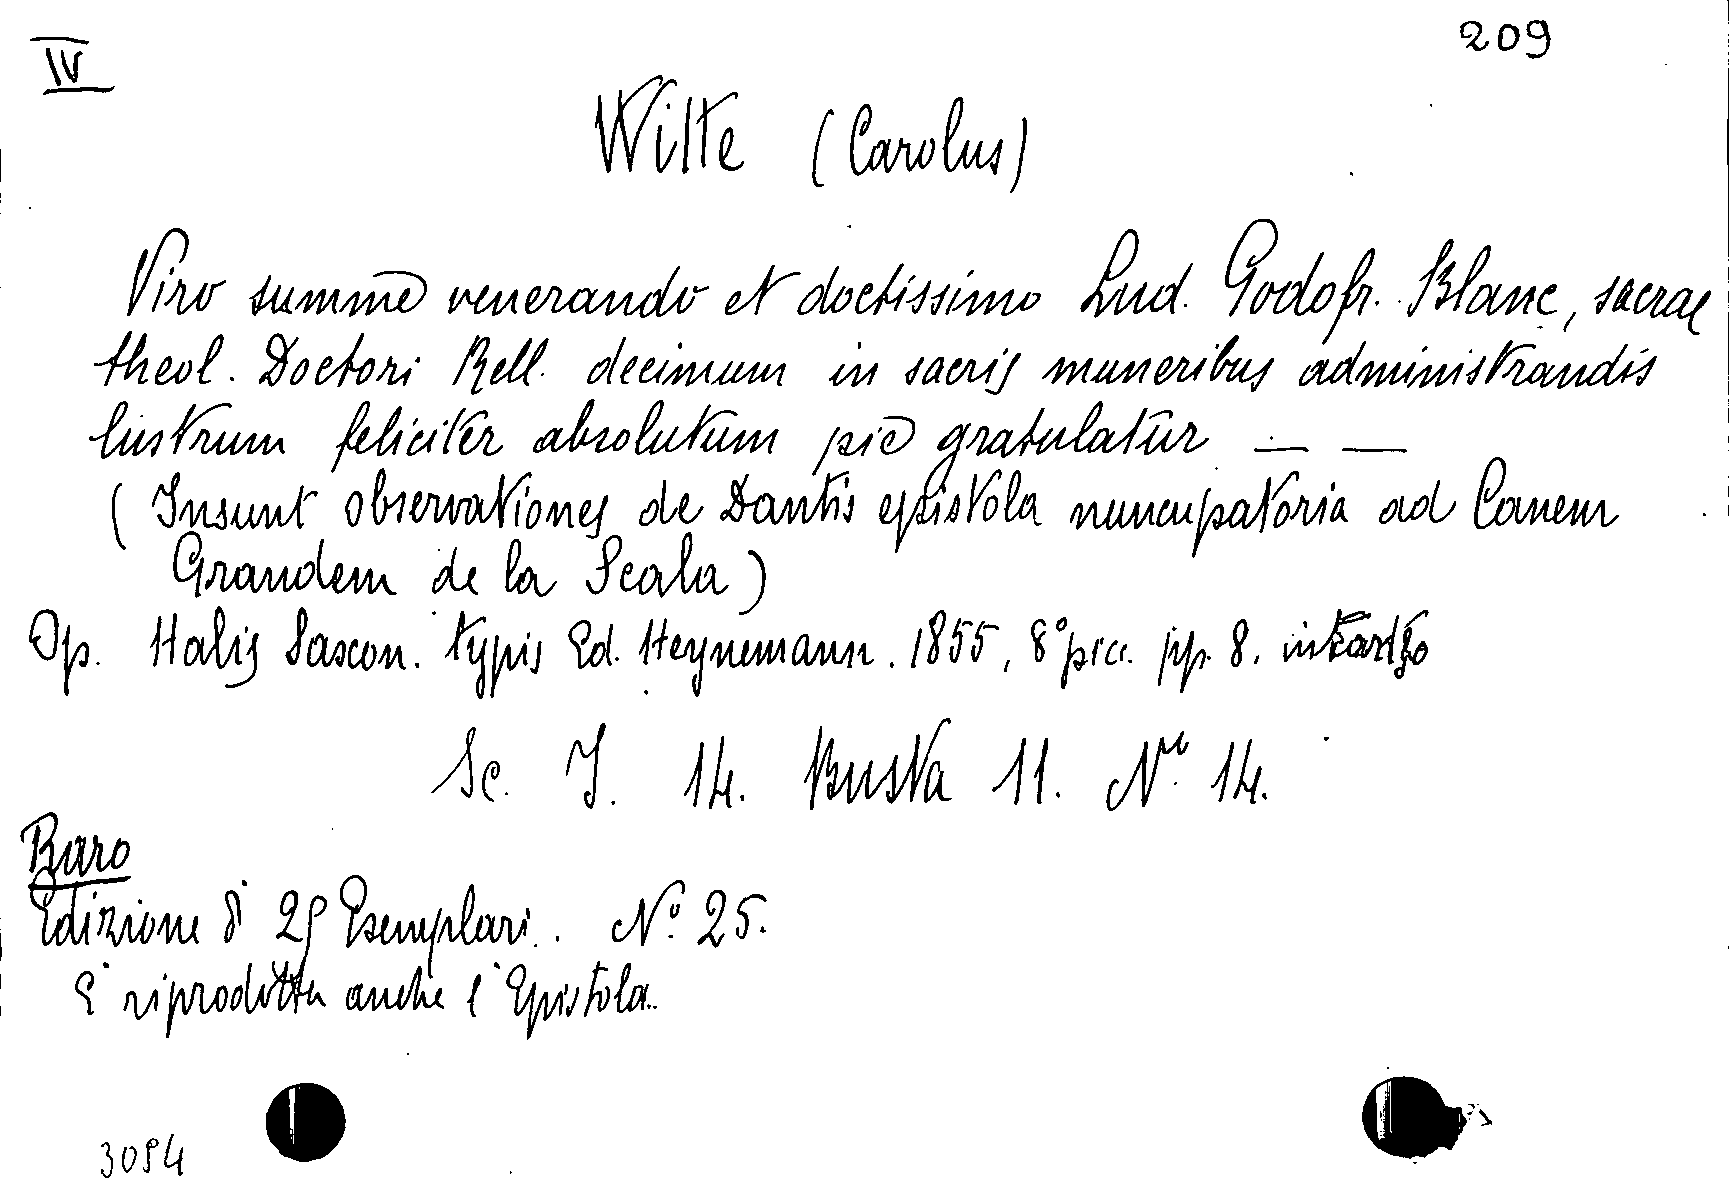 IV
209
Witte (Carolus)
Viro summe venerando et doctissimo Lud. Godofr. Blanc, sacrae
theol. Doctori Rell. decimum in sacris muneribus administrandis
lustrum feliciter absolutum pie gratulatur — —
(Insunt observationes de Dantis epistola nuncupatoria ad Canem
Grandem de la Scala)
Op. Halis Saxon. typis Ed. Heynemann. 1855, 8° picc. pp. 8.
Sc. I. 14. Busta 11. N.º 14.
Raro
Edizione di Esemplari. N.º 25.
E' riprodotta anche l'Epistola.
3094